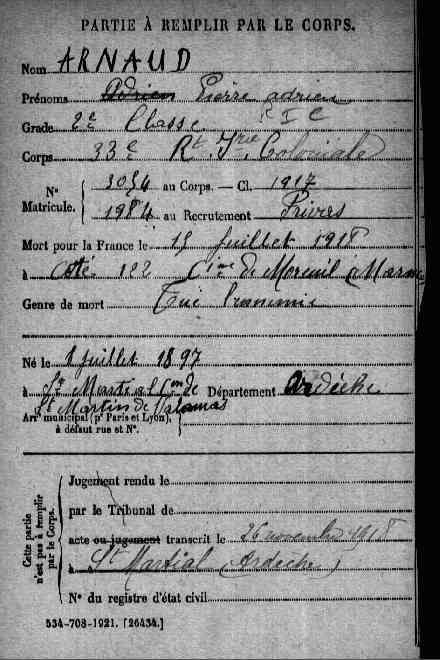 PARTIE À REMPLIR PAR LE CORPS.
Nom ARNAUD
Prénoms Adrien Pierre adrien
R I C
Grade 2e Classe
Corps 33e Rt Irie Coloniale
N° Matricule. 3054 au Corps. — Cl. 1917
1984 au Recrutement Privas
Mort pour la France le 15 Juillet 1918
à Cote 122 de Mareuil (Marne
Genre de mort Tué
Né le 1 juillet 1897
à St Martial Con de Département Ardèche
St Martin de Valamas
Arr municipal (pr Paris et Lyon),
à défaut rue et N°.
Cette partie n'est pas à remplir par le Corps.
Jugement rendu le
par le Tribunal de
acte ou jugement transcrit le 26 novembre 1918
à St Martial (Ardèche)
N° du registre d'état civil
534-708-1921. [26434.]